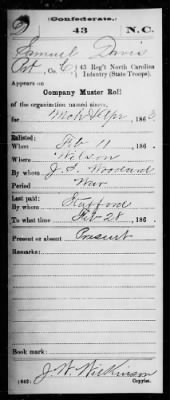 Confederate.
43 N.C.
Samuel Davis
Pvt, Co. C, 43 Reg't North Carolina
Infantry (State Troops).
Appears on
Company Muster Roll
of the organization named above,
for Mch & Apr, 186
Enlisted:
When Feb 11, 186
Where Wilson
By whom J. S. Woodard
Period War
Last paid:
By whom Stafford
To what time Feb 28, 186
Present or absent Present
Remarks:
Book mark:
J. W. Wilkinson
(642) Copyist.